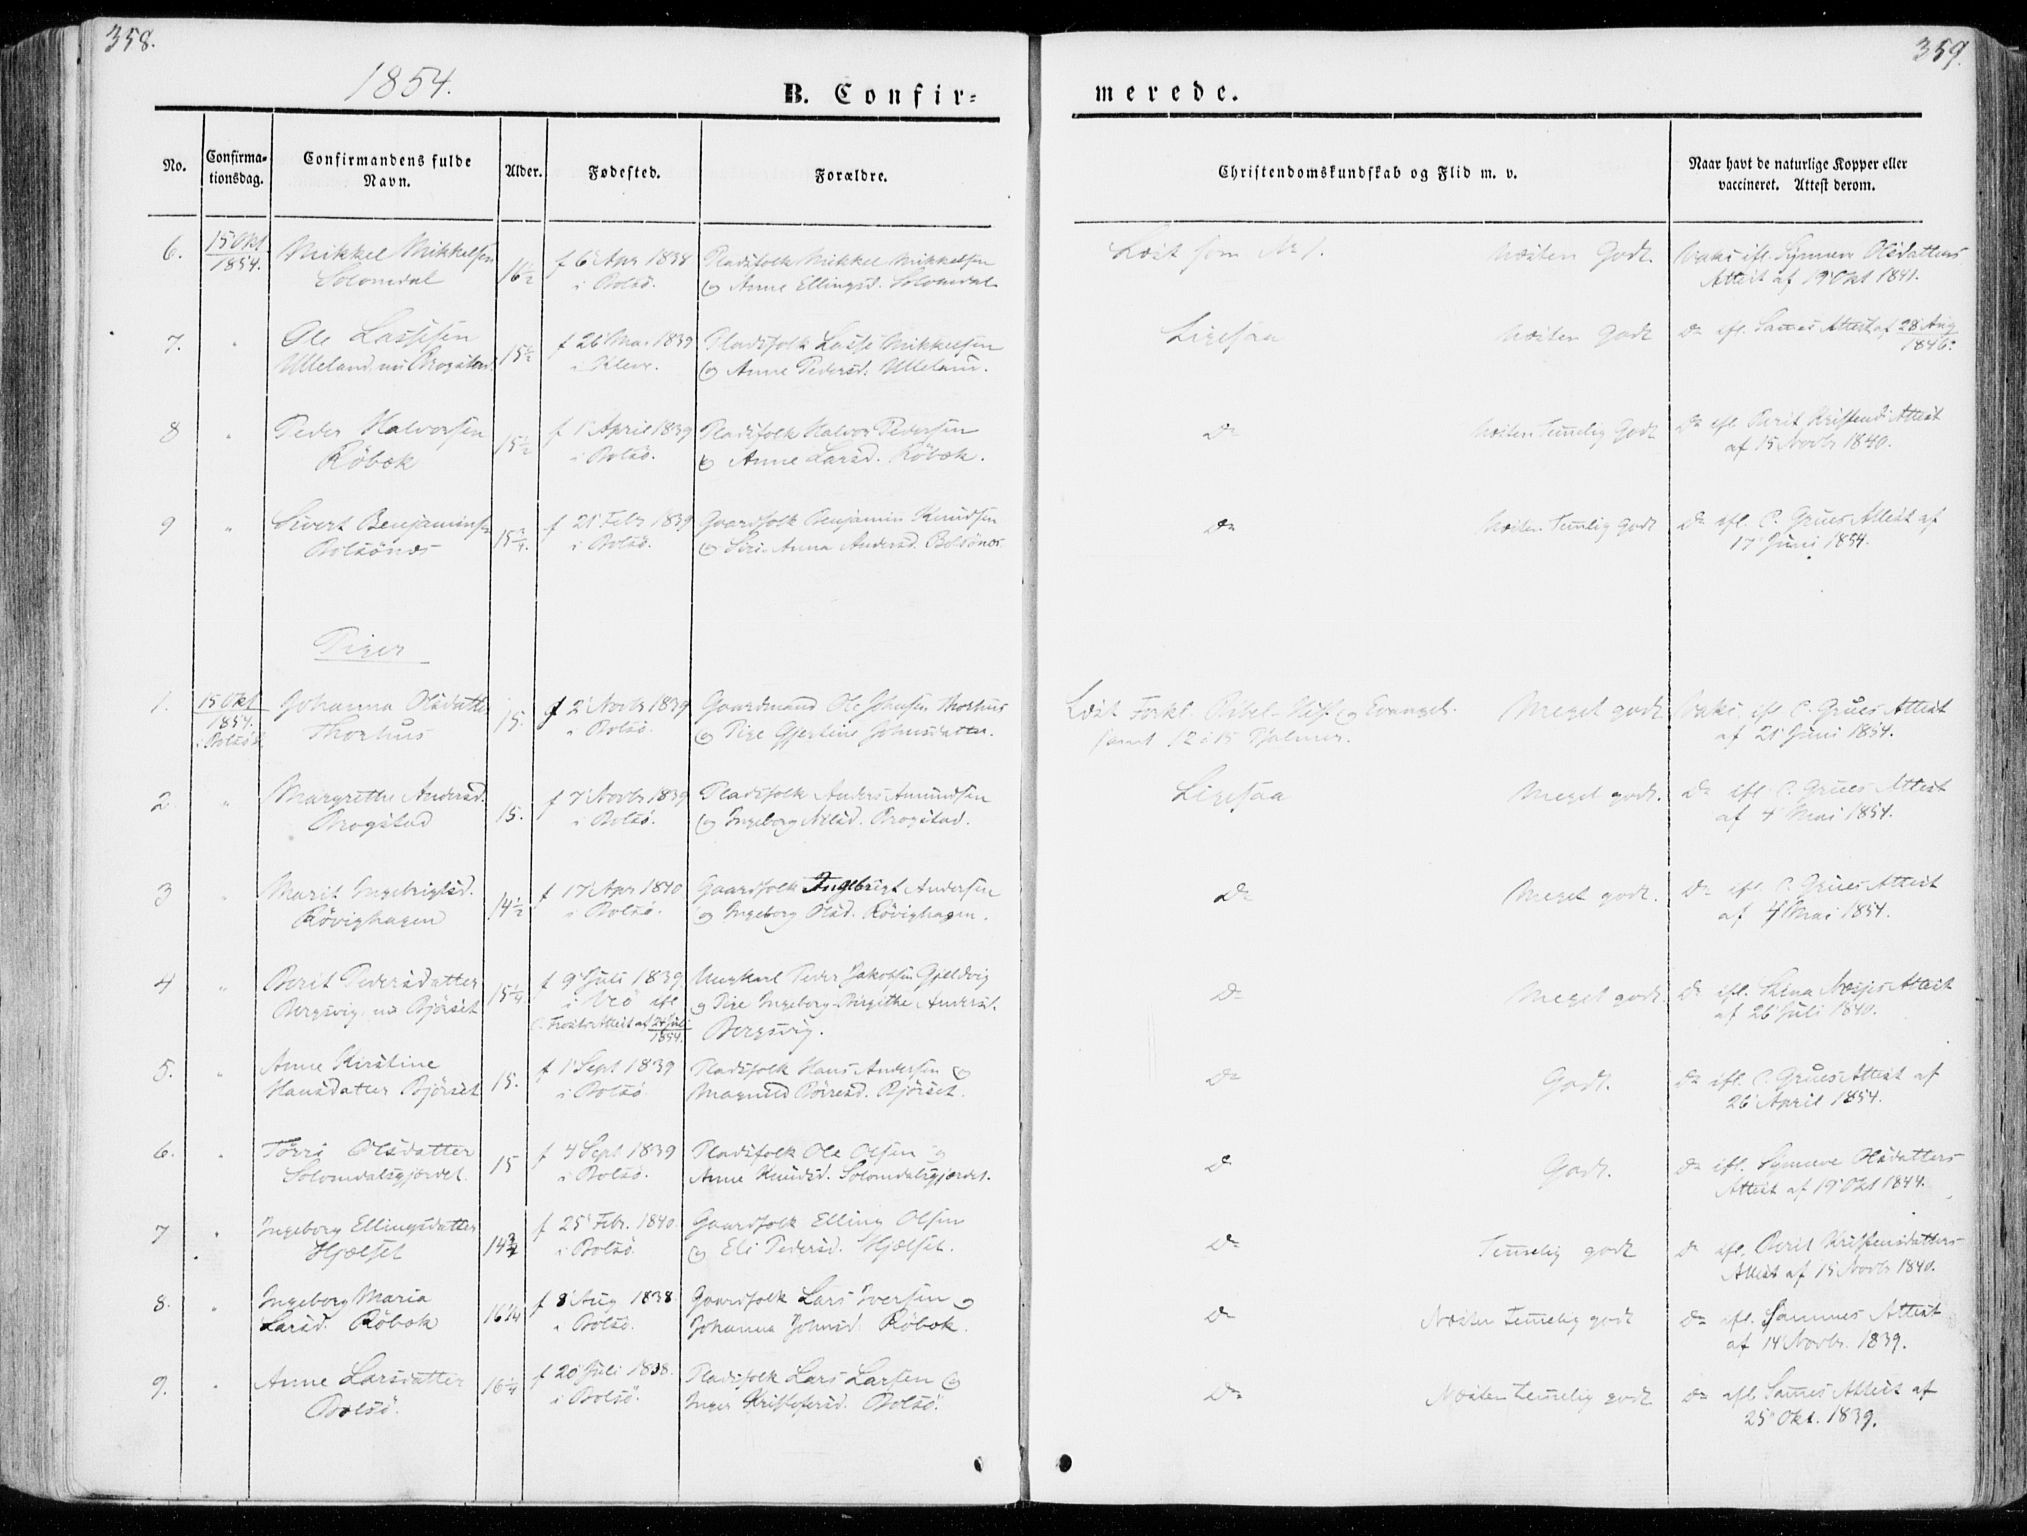 358.
359.
1854.
B. Confir=
merede.
No.
Confirma=
tionsdag.
Confirmandens fulde
Navn.
Alder.
Fødested.
Forældre.
Christendomskundskab og Flid m. v.
Naar havt de naturlige Kopper eller
vaccineret. Attest derom.
6.
15 Okt
1854.
Mikkel Mikkelsen
Solomdal
16½
f 6 Apr 1838
i Bolsø.
Pladsfolk Mikkel Mikkelsen
og Anne Ellingsd. Solomdal
Læst som No 1.
Næsten Godt.
Vaks. ifl. Synneve Olsdatters
Attest af 19 Okt 1841.
7.
"
Ole Lassesen
Ulleland nu Brogstad
15½
f 26 Mar 1839
i Kleve.
Pladsfolk Lasse Mikkelsen
og Anne Pedersd. Ulleland.
Ligesaa
Næsten Godt
Do ifl. Sames Attest af 28 Aug
1846.
8
"
Peder Halvorsen
Röbek
15½
f 1 April 1839
i Bolsö.
Pladsfolk Halvor Pedersen
og Anne Larsd. Röbek.
Do
Næsten Temelig Godt
Do ifl. Berit Kristensd. Attest
af 15 Novbr 1840.
9
"
Sivert Benjaminsen
Bolsönes
15¾.
f 21 Febr 1839
i Bolsö.
Gaardfolk Benjamin Knudsen
og Siri Anna Andersd. Bolsönes.
Do
Næsten Temelig godt
Do ifl. C. Grües Attest af
17 Juni 1854.
Piger
1.
15 Okt
1854.
i Bolsö K
Johanna Olsdatter
Thorhus
15.
f 2 Novbr 1839
i Bolsö.
Gaardmand Ole Johnsen Thorhus
og Pige Gjertine Johnsdatter.
Læst Forkl. Bibel-Hist. og Evangel.
samt 12 à 15 Psalmer.
Meget godt
Vaks. ifl. C. Grües Attest
af 21 Juni 1854.
2
"
Margrethe Andersd.
Brogstad
15.
f 7 Novbr 1839
i Bolsö.
Pladsfolk Anders Amundsen
og Ingeborg Nilsd. Brogstad.
Ligesaa
Meget godt.
Do ifl. C. Grües Attest
af 4 Mai 1854.
3
"
Marit Ingebrigtsd.
Rövighagen
14½
f 17 Apr 1840
i Bolsö.
Gaardfolk Ingebrigt Andersen
og Ingeborg Olsd. Rövighagen.
Do
Meget godt.
Do ifl. C. Grües Attest
af 4 Mai 1854.
4
"
Berit Pedersdatter
Bergsvig, nu Björset
15¼
f 9 Juli 1839
i Veö ifl
Attest af 24 Juli
1854.
Ungkarl Peder Jakobsen Gjeldvig
og Pige Ingeborg Birgithe Andersd.
Bergsvig.
Do
Meget godt.
Do ifl. Attest
af 26 Juli 1840.
5.
"
Anne Kirstine
Hansdatter Björset
15.
f 1 Sept 1839
i Bolsö
Pladsfolk Hans Andersen og
Magnild Börresd. Björset.
Do
Godt.
Do ifl. C. Grües Attest af
26 April 1854.
6.
"
Törri Olsdatter
Solomdalsgjerdet.
15
f 4 Sept 1839
i Bolsö.
Pladsfolk Ole Olsen og
Anne Knudsd. Solomdalsgjerdet.
Do
Godt.
Do ifl. Synneve Olsdatters
Attest af 19 Okt 1844.
7
"
Ingeborg Ellingsdatter
Hjelset
14¾
f 25 Febr. 1840
i Bolsö
Gaardfolk Elling Olsen
og Eli Pedersd. Hjelset.
Do
Temelig godt
Do ifl. Berit Kristensdatters
Attest af 15 Novbr 1840.
8.
"
Ingeborg Maria
Larsd. Röbek
16 1/4
f 8 Aug 1838
i Bolsö.
Gaardfolk Lars Iversen og
Johanna Johnsd. Röbek.
Do
Næsten temelig godt
Do ifl. Sammes Attest
af 14 Novbr. 1839.
9.
"
Anne Larsdatter
Bolsö.
16¼
f 20 Juli 1838.
i Bolsö.
Pladsfolk Lars Larsen og
Inger Kristofersd. Bolsö.
Do
Næsten temelig godt
Do ifl. Sames Attest af
25 Okt. 1839.